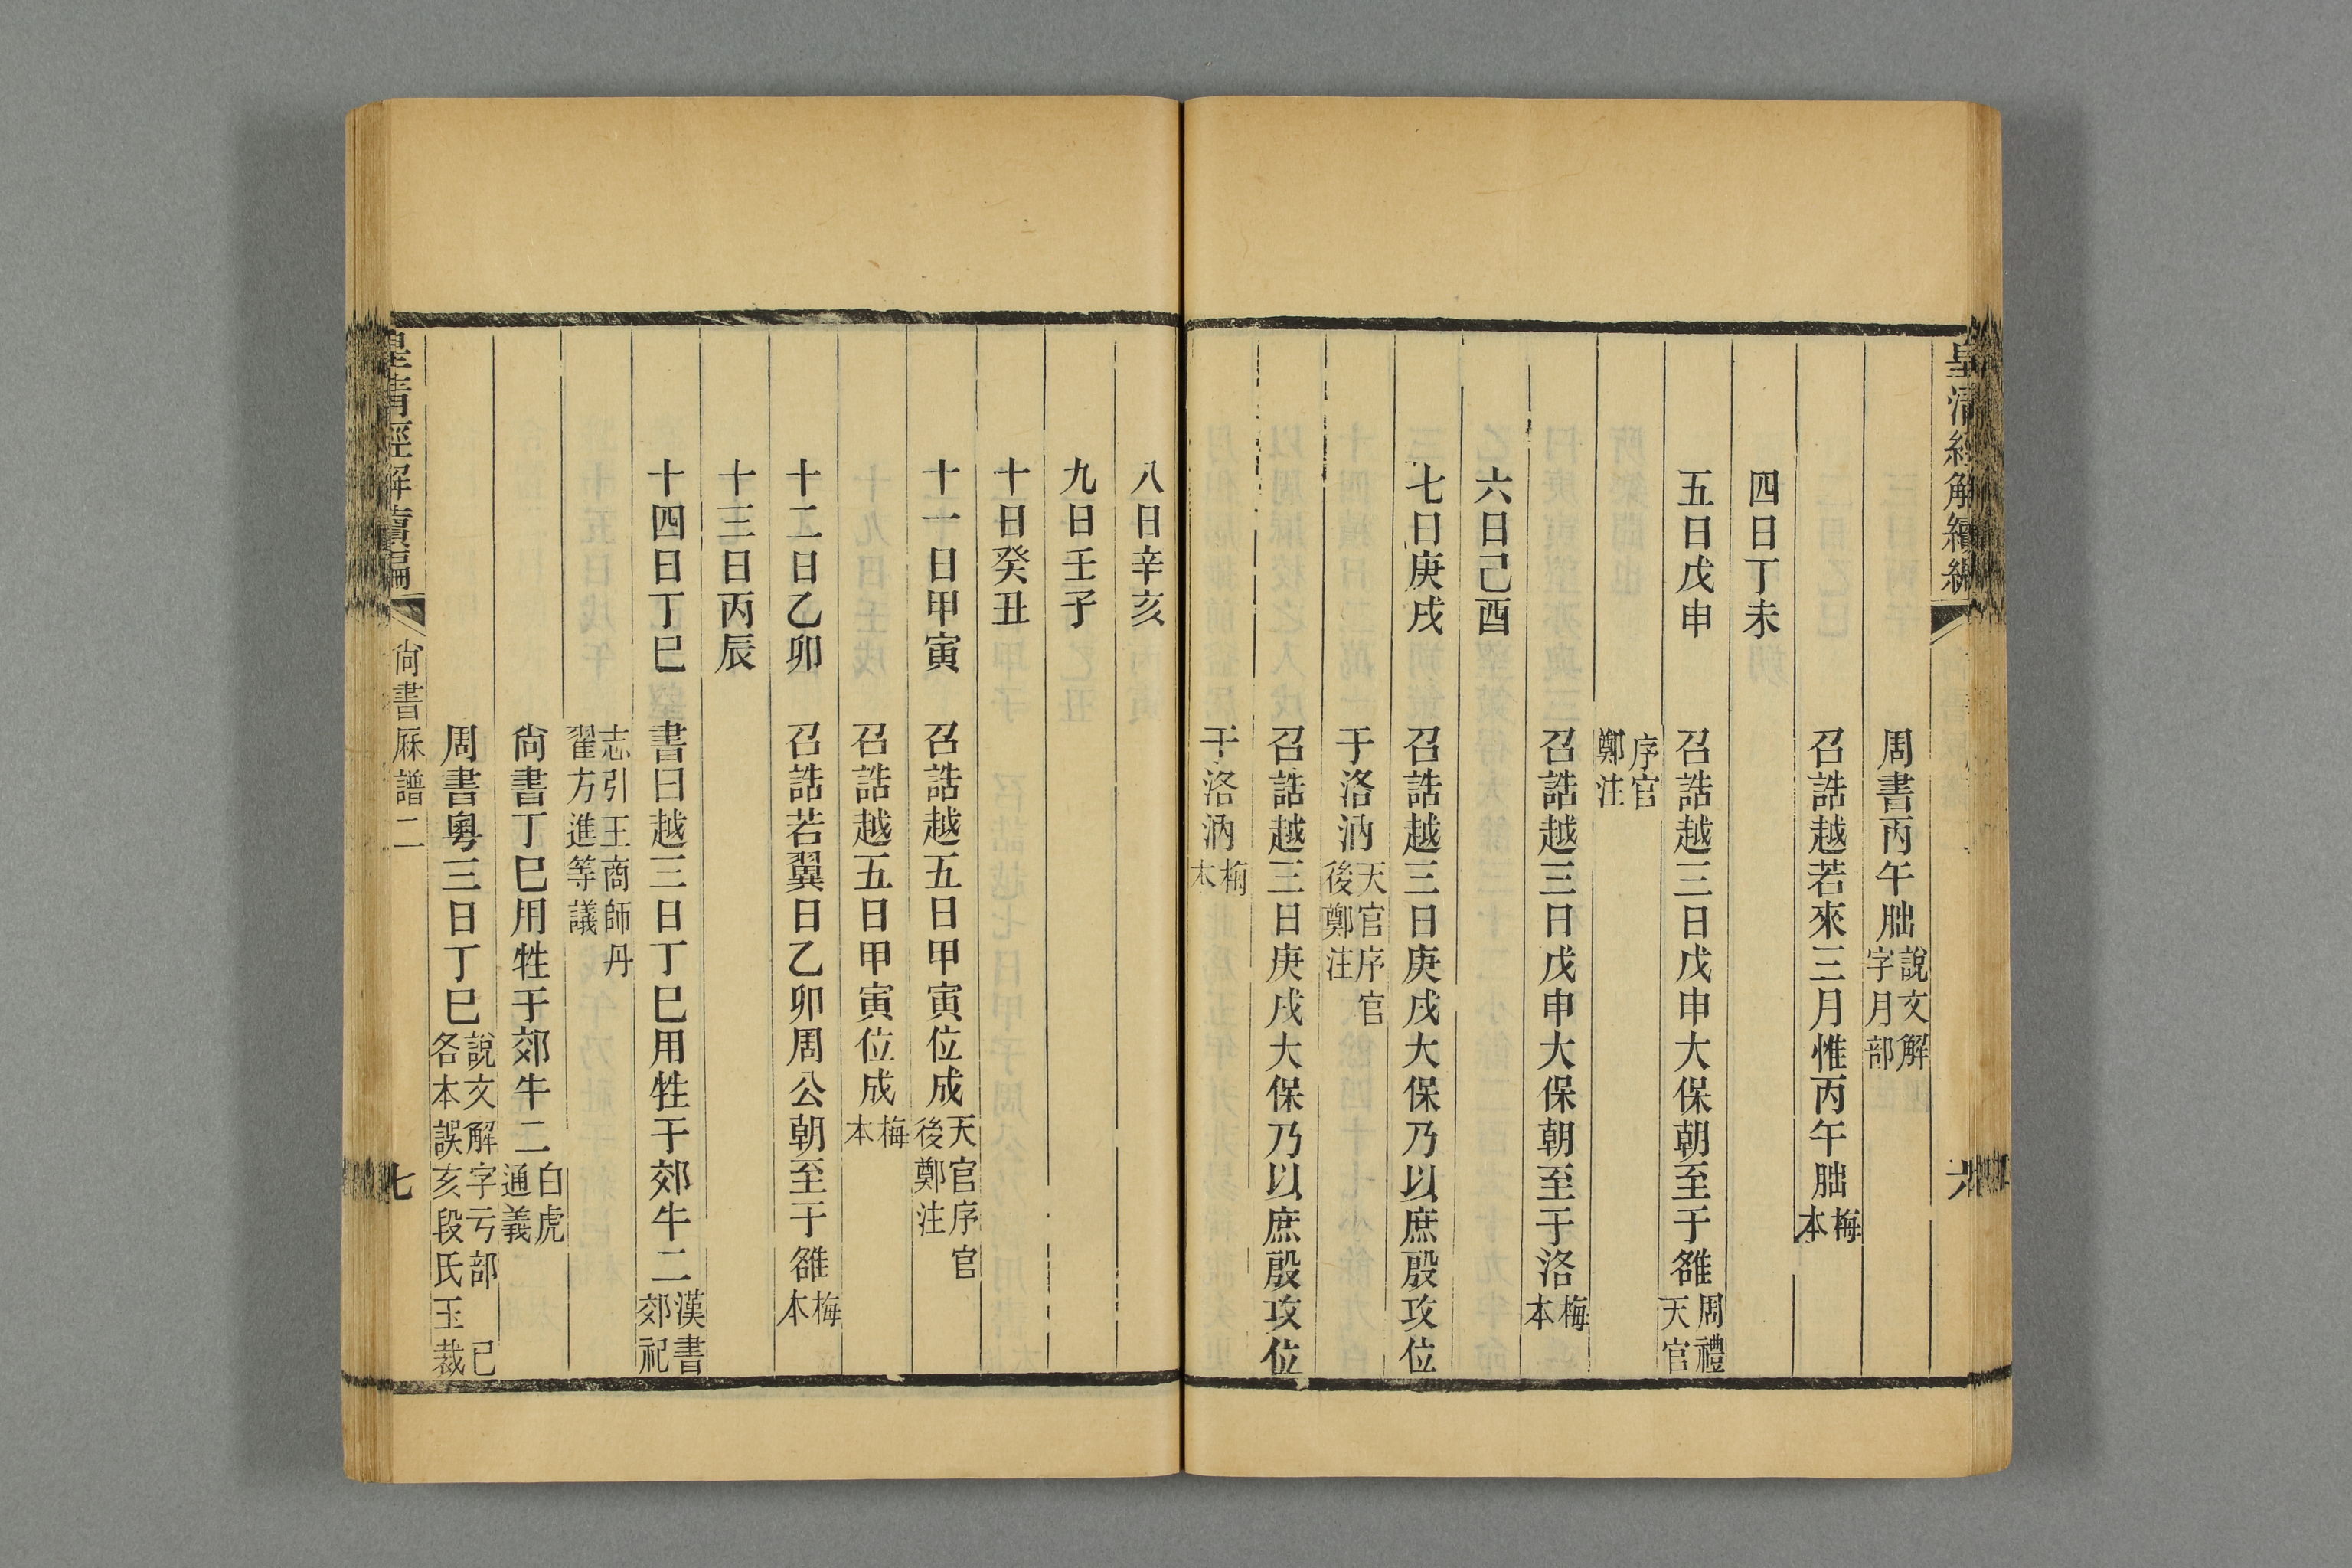 皇清經解續編
六
周書丙午朏說文解字月部
召誥越若來三月惟丙午朏梅本
四日丁未
五日戊申 召誥越三日戊申大保朝至于雒周禮天官
序官鄭注
召誥越三日戊申大保朝至于洛梅本
六日己酉
七日庚戌 召誥越三日庚戌大保乃以庶殷攻位
于洛汭天官序官後鄭注
召誥越三日庚戌大保乃以庶殷攻位
于洛汭梅本
八日辛亥
九日壬子
十日癸丑
十一日甲寅 召誥越五日甲寅位成天官序官後鄭注
召誥越五日甲寅位成梅本
十二日乙卯 召誥若翼日乙卯周公朝至于雒梅本
十三日丙辰
十四日丁巳 書曰越三日丁巳用牲于郊牛二漢書郊祀
志引王商師丹翟方進等議
尙書丁巳用牲于郊牛二白虎通義
周書粵三日丁巳說文解字亏部 已各本誤亥段氏玉裁
皇清經解續編
尙書厤譜二
七